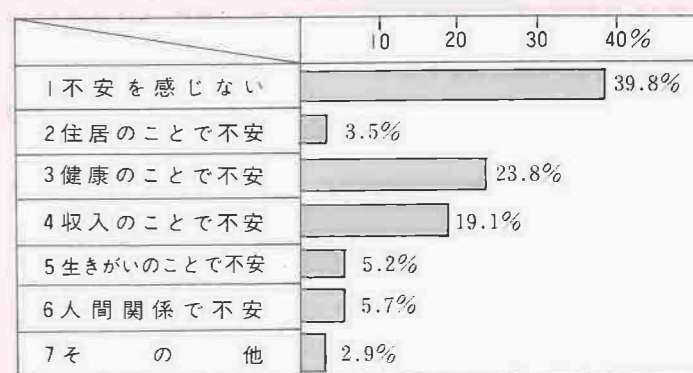 10 20 30 40%
1不安を感じない 39.8%
2住居のことで不安 3.5%
3健康のことで不安 23.8%
4収入のことで不安 19.1%
5生きがいのことで不安 5.2%
6人間関係で不安 5.7%
7その他 2.9%